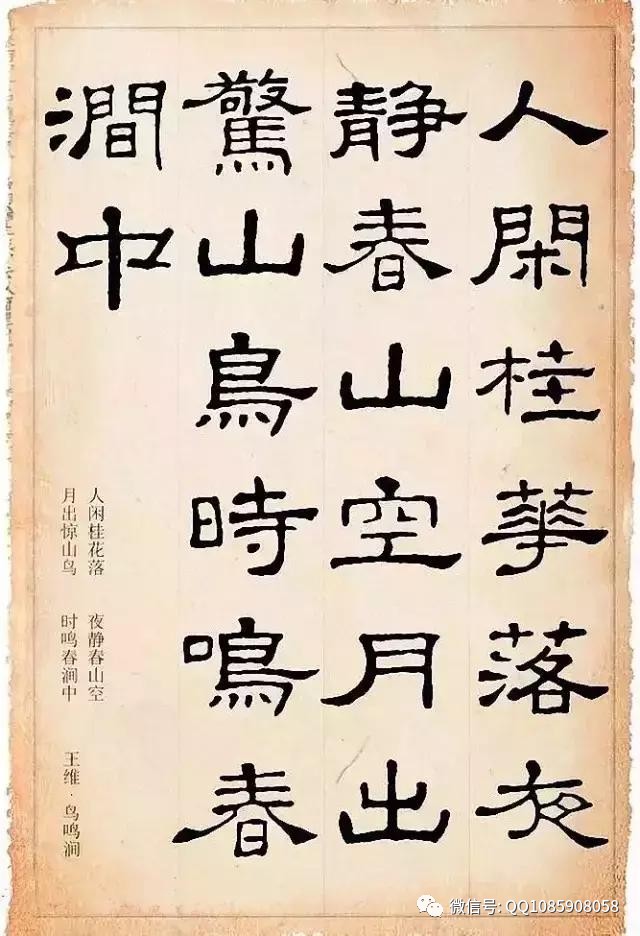 人閑桂華落夜
靜春山空月出
驚山鳥時鳴春
澗中
人闲桂花落 夜静春山空
月出惊山鸟 时鸣春涧中 王维·鸟鸣涧
微信号: QQ1085908058